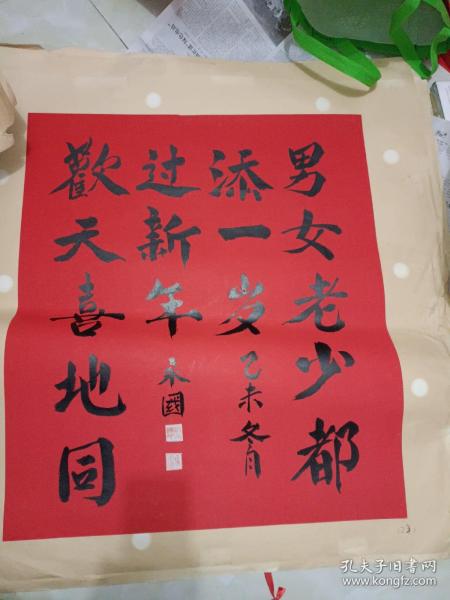 男女老少都
添一岁
己未冬月
歡天喜地同
过新年
永國
孔夫子旧书网
www.kongfz.com